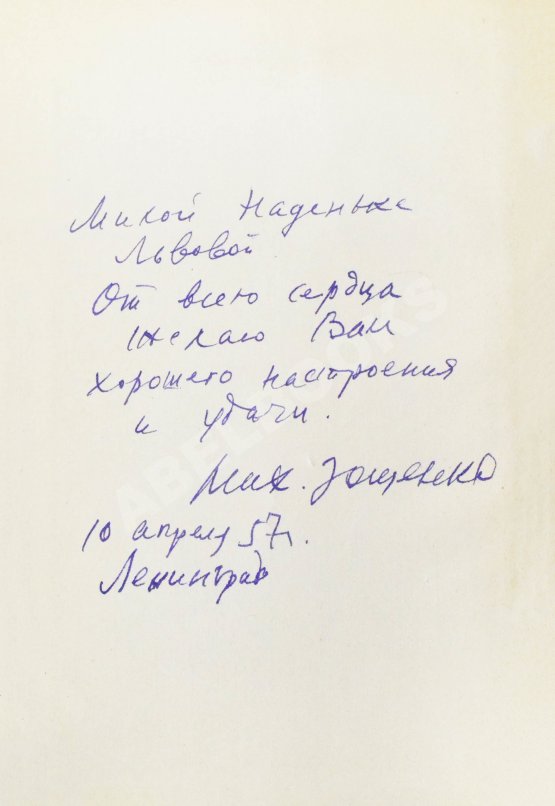 Милой Наденьке
Львовой
От всего сердца
желаю Вам
хорошего настроения
и удачи.
Мих. Зощенко
10 апреля 57 г.
Ленинград
ABELBOOKS